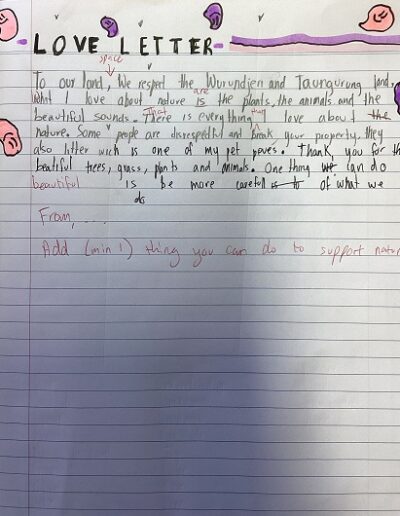 LOVE LETTER
space
To our land, We respect the Wurundjeri and Taungurung land.
What I love about nature is are the plants, the animals and the
beautiful sounds. There is everything I love about the
nature. Some people are disrespectful and break your property, they
also litter wich is one of my pet peves. Thank, you for the
beatiful trees, grass, plants and animals. One thing we can do
beautiful is be more careful is to of what we
do
From, .....
Add (min 1) thing you can do to support natur